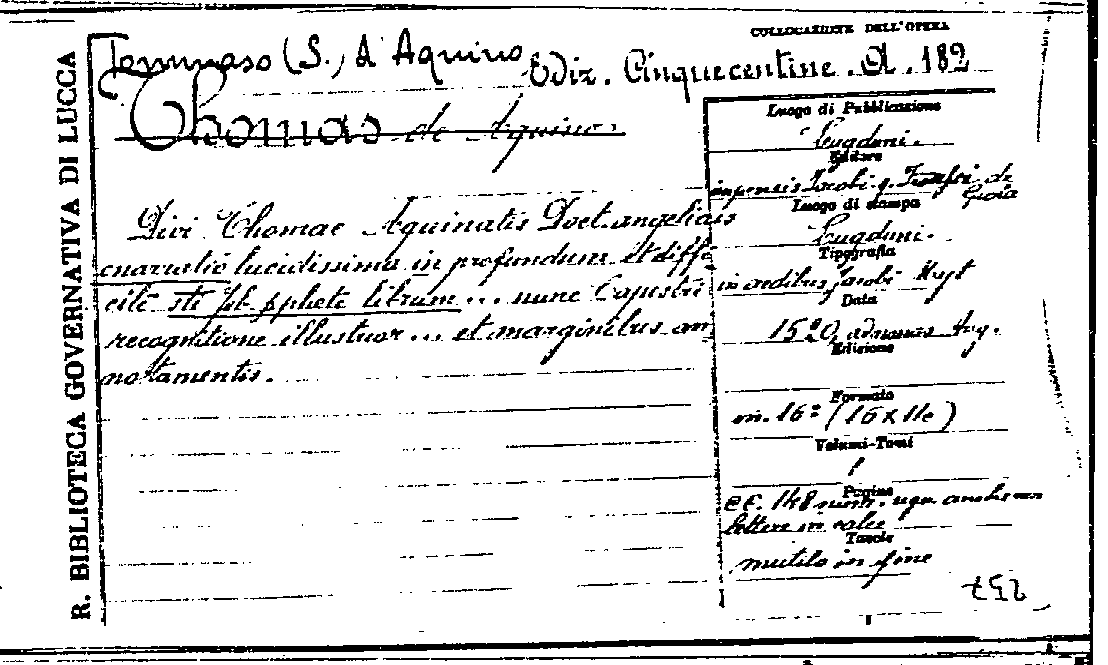 R. BIBLIOTECA GOVERNATIVA DI LUCCA
COLLOCAZIONE DELL'OPERA
Tommaso (S.) d'Aquino
Ediz. Cinquecentine. A. 182
Thomas de Aquino
Divi Thomae Aquinatis Doct. angelicis
enarratio lucidissima in profundum et diffi
cile sti Job pphete librum ... nunc
recognitione illustrior ... et marginibus an
notamentis.
Luogo di Pubblicazione
Lugduni.
Editore
impensis Jacobi q. de
Gioia
Luogo di stampa
Lugduni.
Tipografia
in aedibus Jacobi Myt
Data
1520, ad nonas Aug.
Edizione
Formato
in. 16º (16 x 11c)
Volumi-Tomi
1
Pagine
cc. 148 num. anche con
lettere in calce
Tavole
mutilo in fine
257